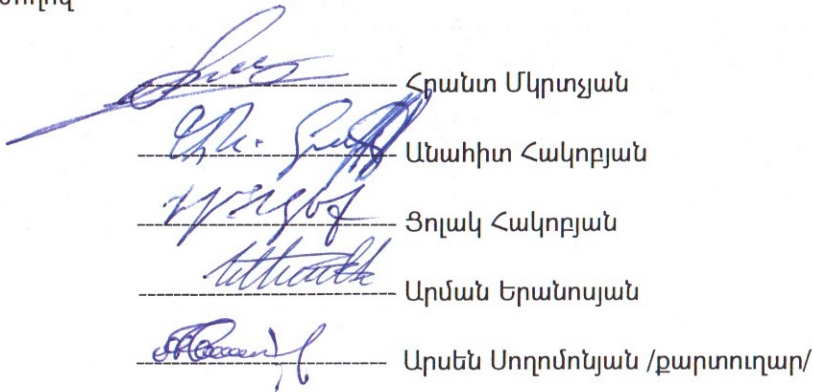 Հրանտ Մկրտչյան
Անահիտ Հակոբյան
Ցոլակ Հակոբյան
Արման Երանոսյան
Արսեն Սողոմոնյան /քարտուղար/